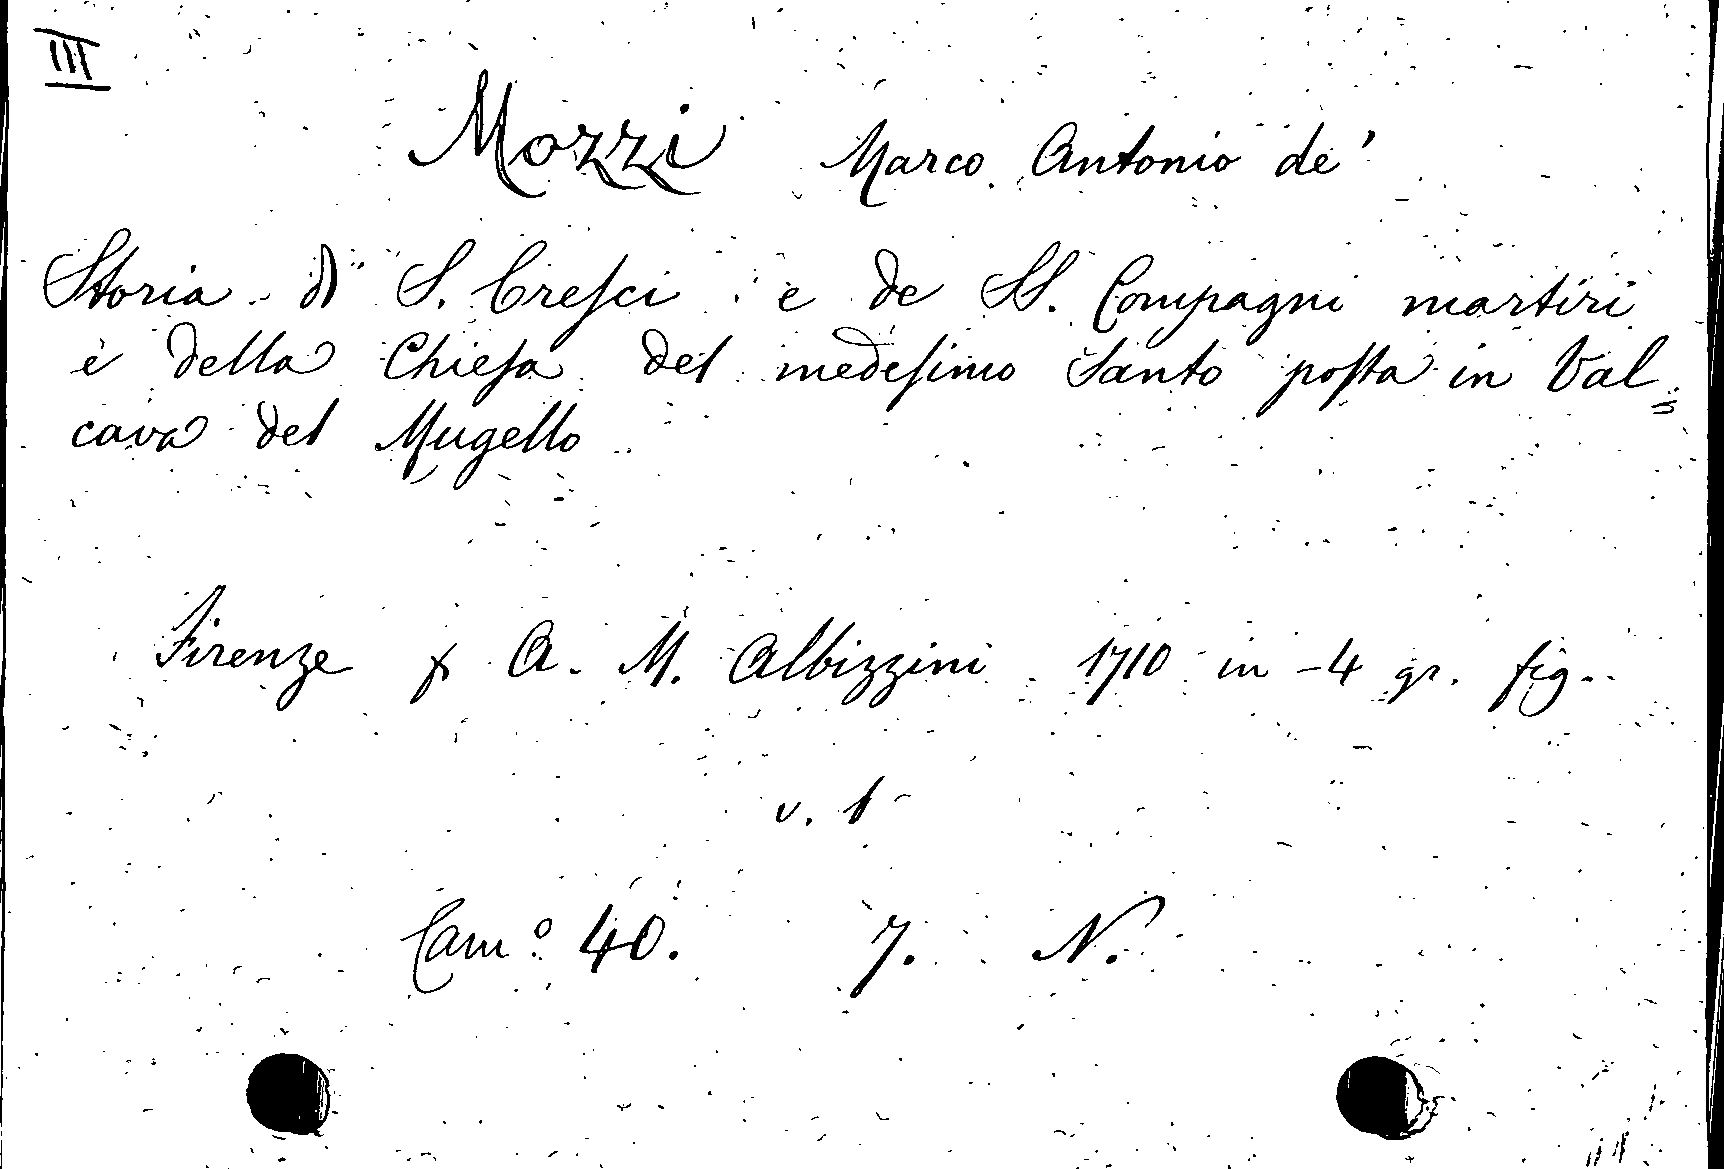 III
Mozzi Marco Antonio de'
Storia di S. Creſci e de SS. Compagni martiri
e della Chieſa del medeſimo Santo poſta in Val=
cava del Mugello
Firenze p A. M. Albizzini 1710 in-4 gr. fig.
v. 1
Cam.º 40. 7. N.